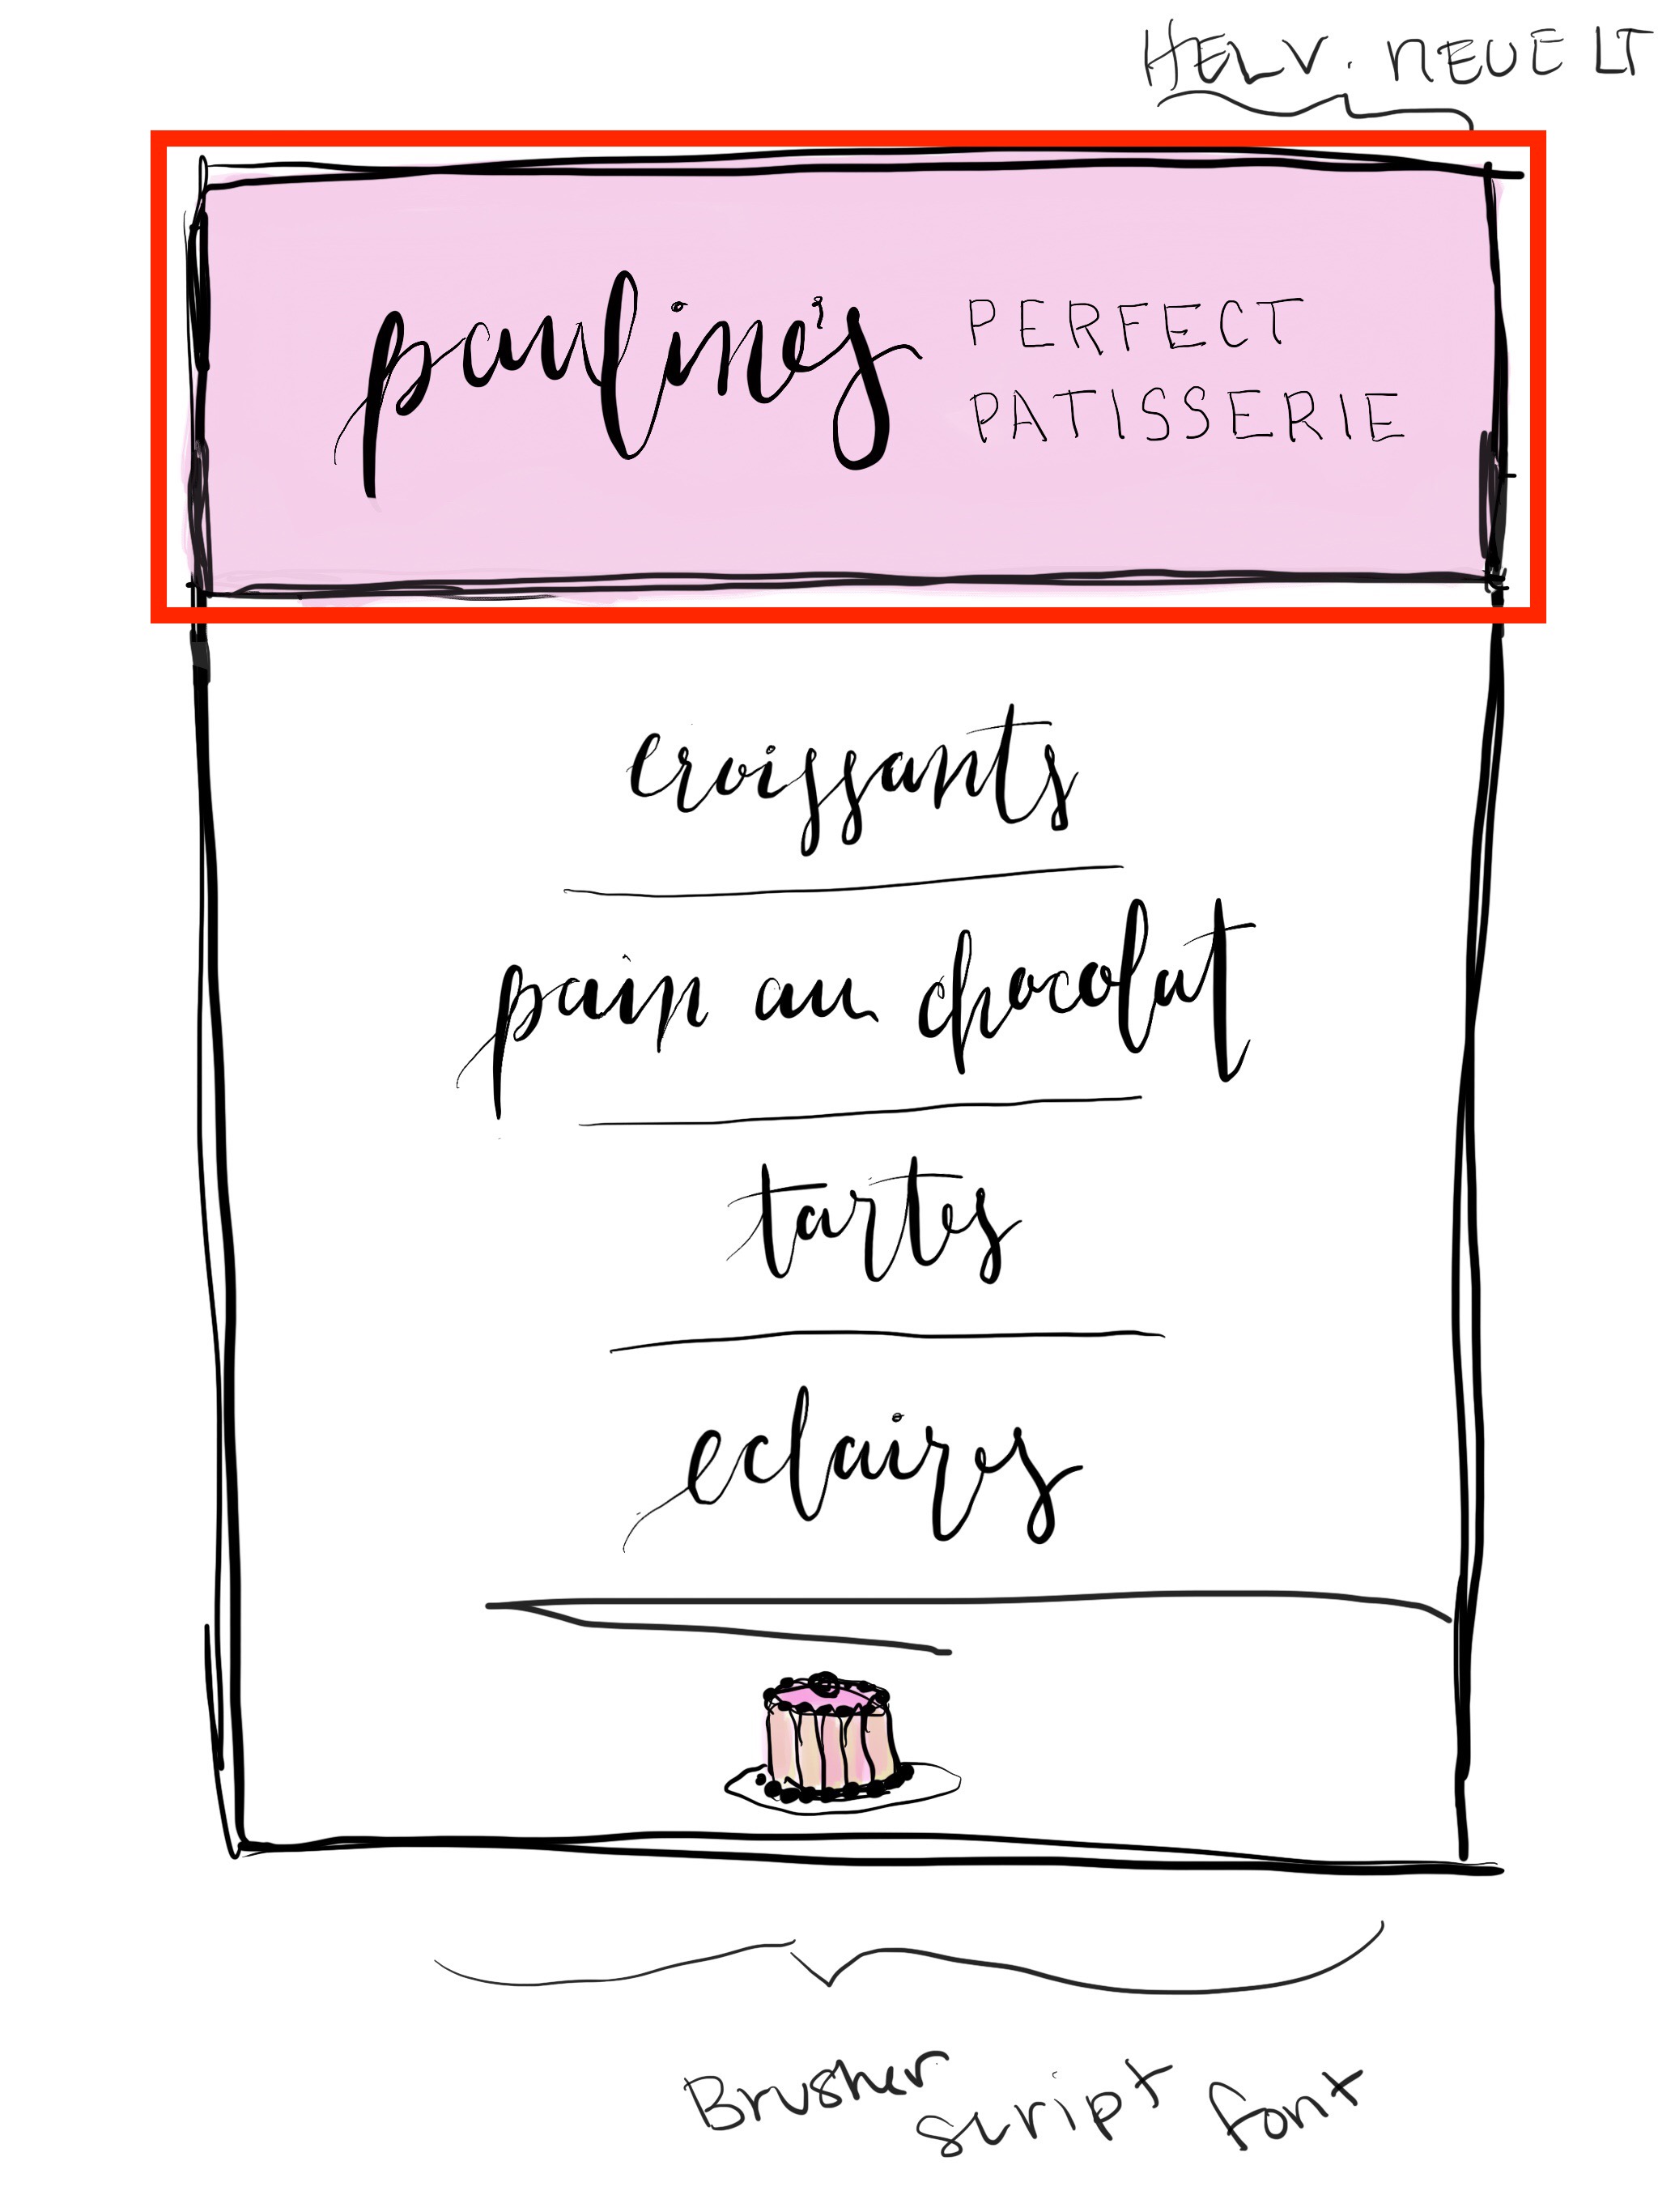 HELV. NEUE LT
pauline's PERFECT
PATISSERIE
croissants
pain au chocolat
tartes
eclaires
Brusher
script font